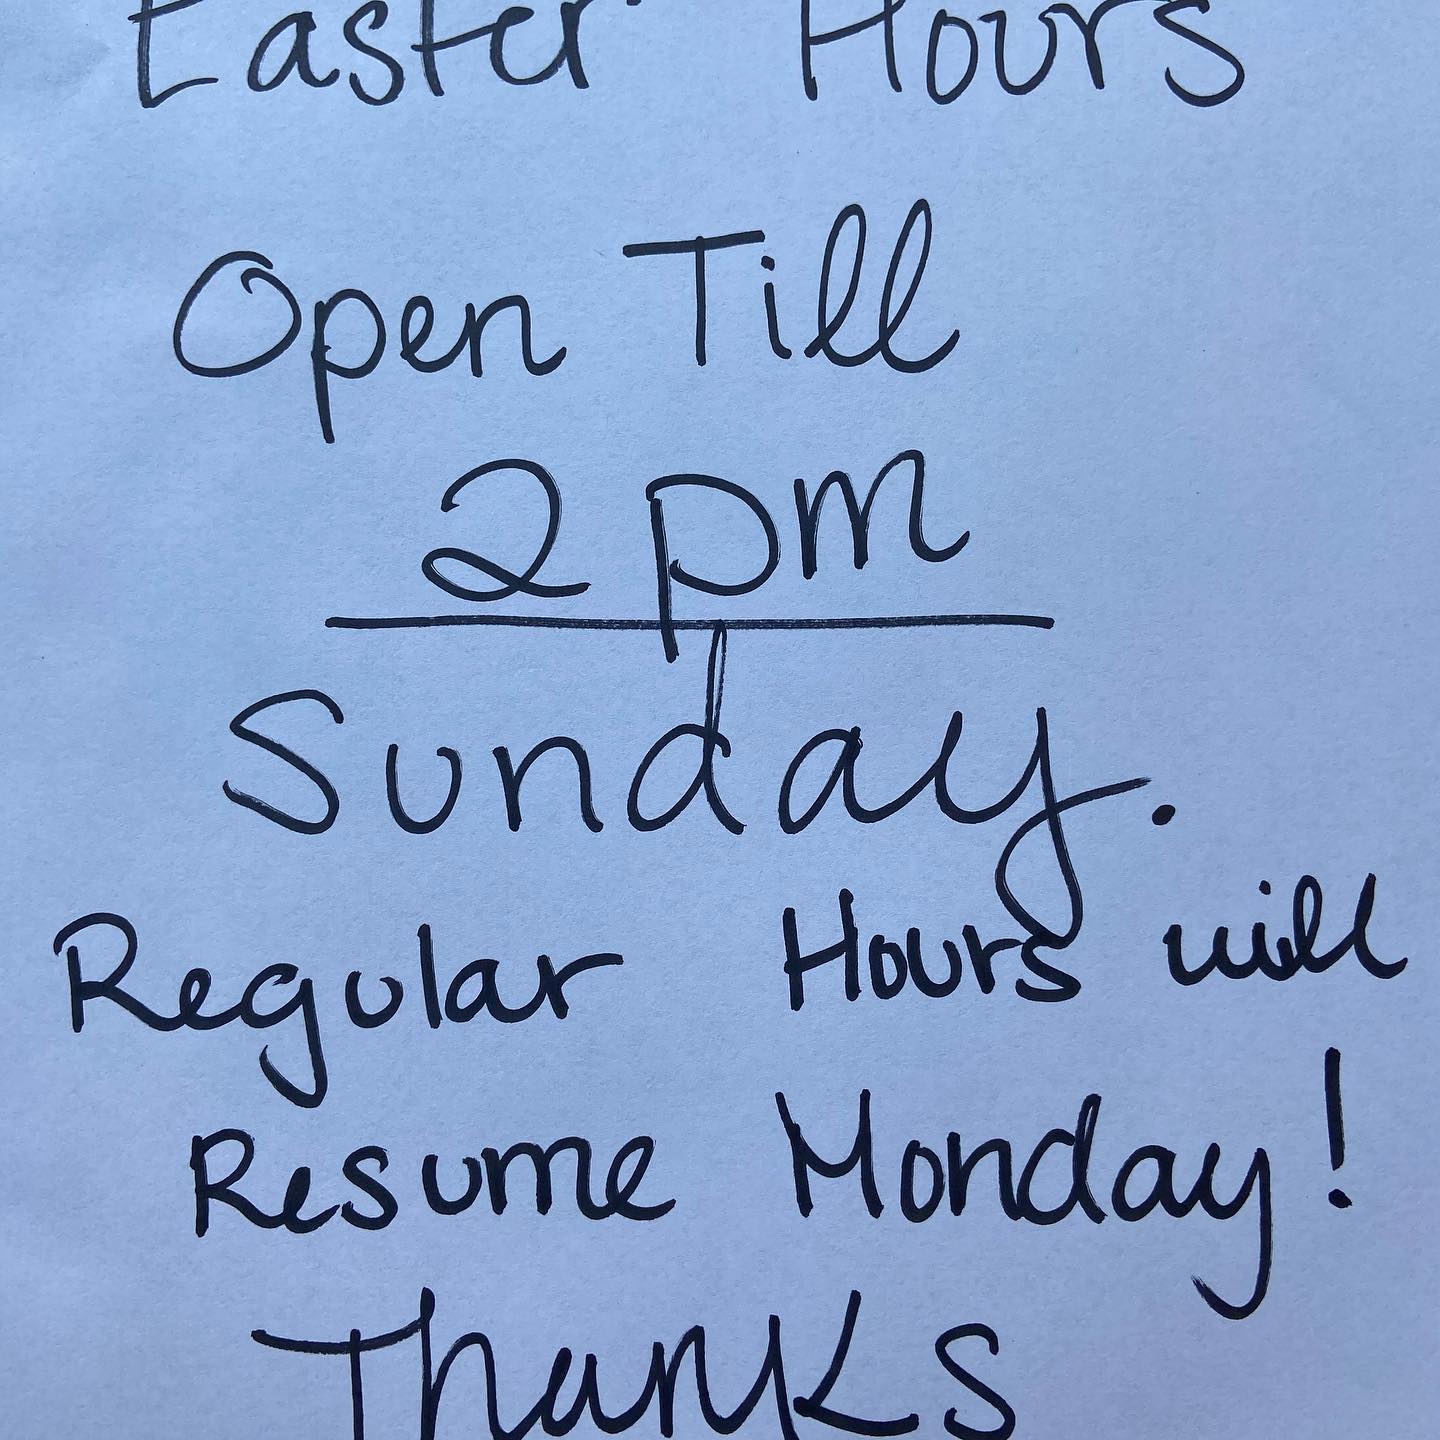 Easter Hours
Open Till
2pm
Sunday.
Regular Hours will
Resume Monday!
Thanks